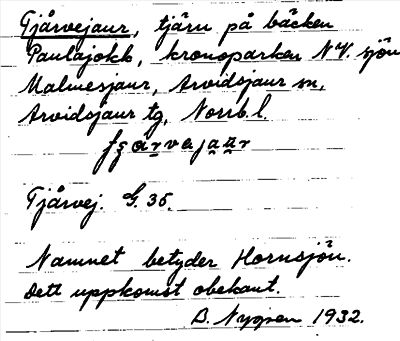 Tjårvejaur, tjärn på bäcken
Paulajokk, kronoparken N.V. sjön
Malmesjaur, Arvidsjaur sn,
Arvidsjaur tg, Norrb. l.
Tjårvej. G. 35.
Namnet betyder Hornsjön.
Dett uppkomst obekant.
B. Nygren 1932.